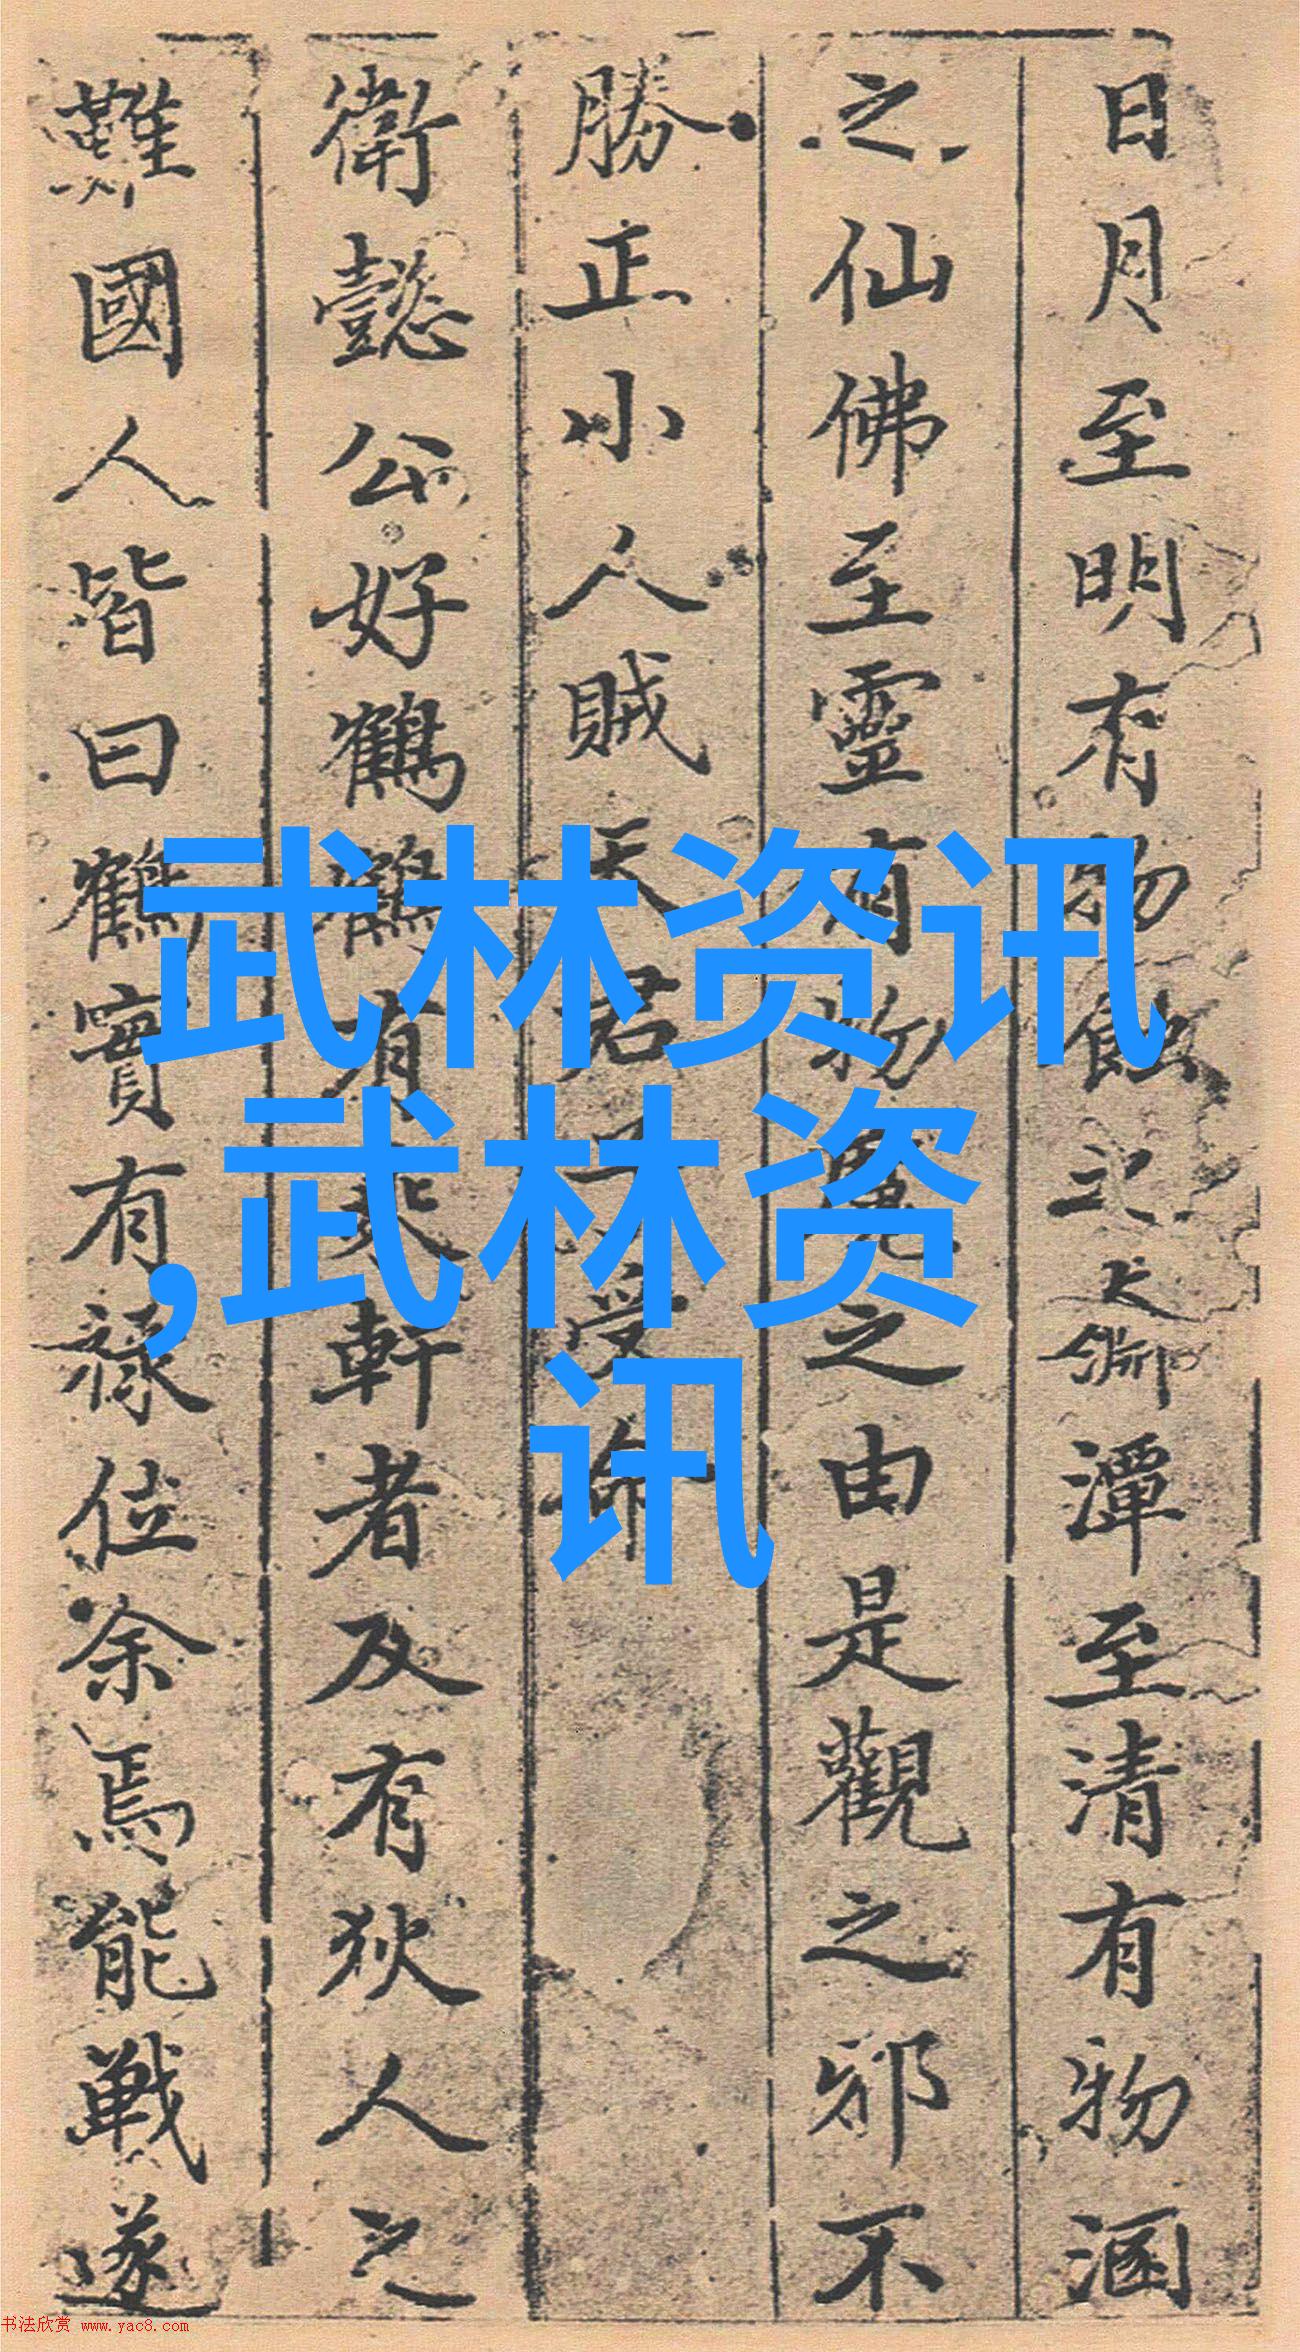 日月至明有物蝕之潭至清有物涵
之仙佛至靈有物之由是觀之邪不
勝正小人賊天君受命
衛懿公好鶴鶴有乘軒者及有狄人之
難國人皆曰鶴實有祿位余焉能戰遂
武林资讯
,武林资
讯
书法欣赏 www.yac8.com